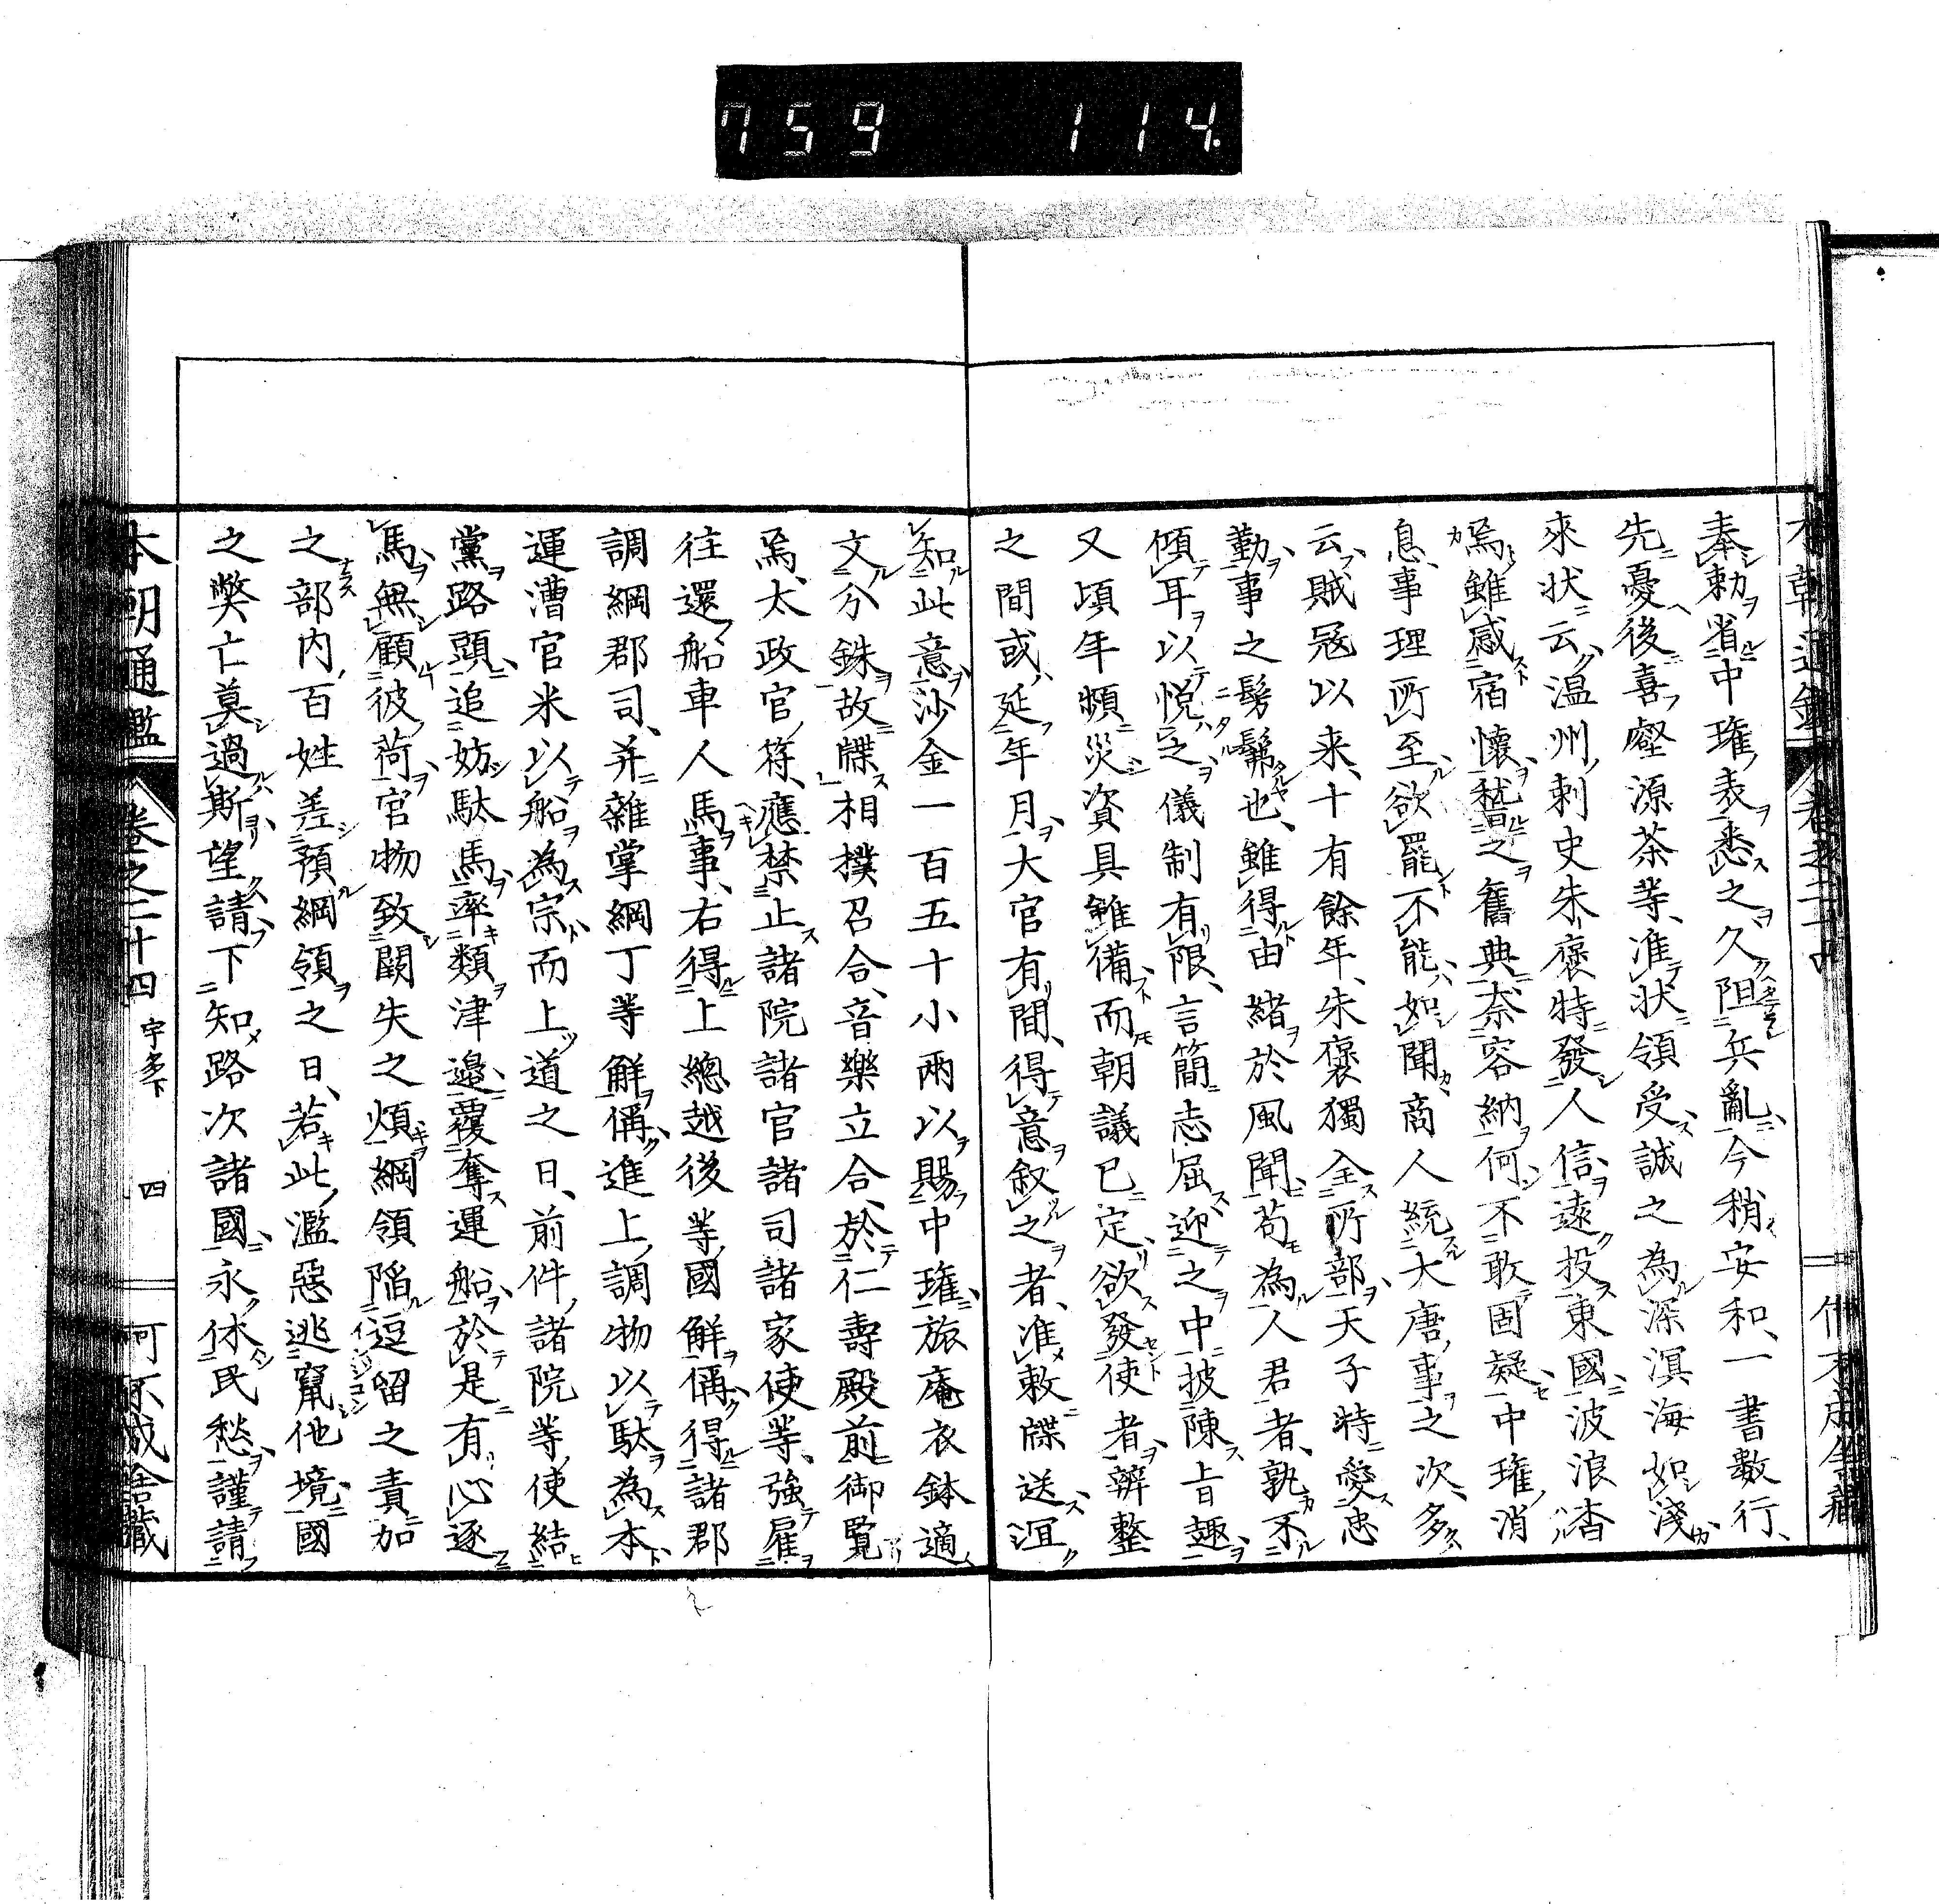 759 114.
奉勅省中瓘表悉之久阻兵亂今稍安和、一書數行、
先憂後喜䑓源茶等、准狀領受誠之為深溟海如淺
來狀云溫州刺史朱褒特發人信遠投東國波浪沓
焉雖感宿懷稽之舊典奈容納何不敢固疑中瓘消
息、事理所至欲罷不能如聞商人統大唐事之次、多
云賊寇以來、十有餘年、朱褒獨全所部天子特愛忠
勤、事之髣髴也、雖得由緒於風聞苟為人君者、孰不
傾耳以悅之儀制有限、言簡志屈迎之中披陳旨趣
又頃年頻災資具雖備而朝議已定欲發使者辨整
之間或延年月大官有間、得意叙之者、准敕牒送泹
知此意沙金一百五十小兩以賜中瓘旅庵衣鉢適
文分銖故牒相撲召合、音樂立合、於仁壽殿前御覽
焉、太政官符、應禁止諸院諸官諸司諸家使等、強雇
往還船車人馬事、右得上總越後等國解偁得諸郡
調綱郡司、并雜掌綱丁等解偁進上調物以駄為本
運漕官米以船為宗而上道之日、前件諸院等使結
黨路頭追妨駄馬率類津邊覆奪運船於是有心逐
馬無顧彼荷官物致闕失之煩綱領陷逗留之責加
之部內百姓差預綱領之日、若此濫惡逃竄他境國
之弊亡莫過斯望請下知路次諸國永休民愁謹請
本朝通鑑 卷之二十四 宇多下 四